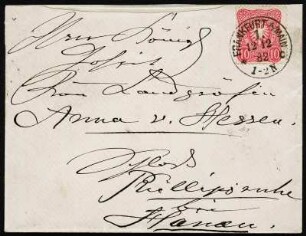 Ihrer Königl.
Hoheit
Frau Landgräfin
Anna v. Hessen.
Schloß
Phillipsruhe
bei
Hanau.
FRANKFURT A. MAIN
1.
12 12
82
1-2N
10 10